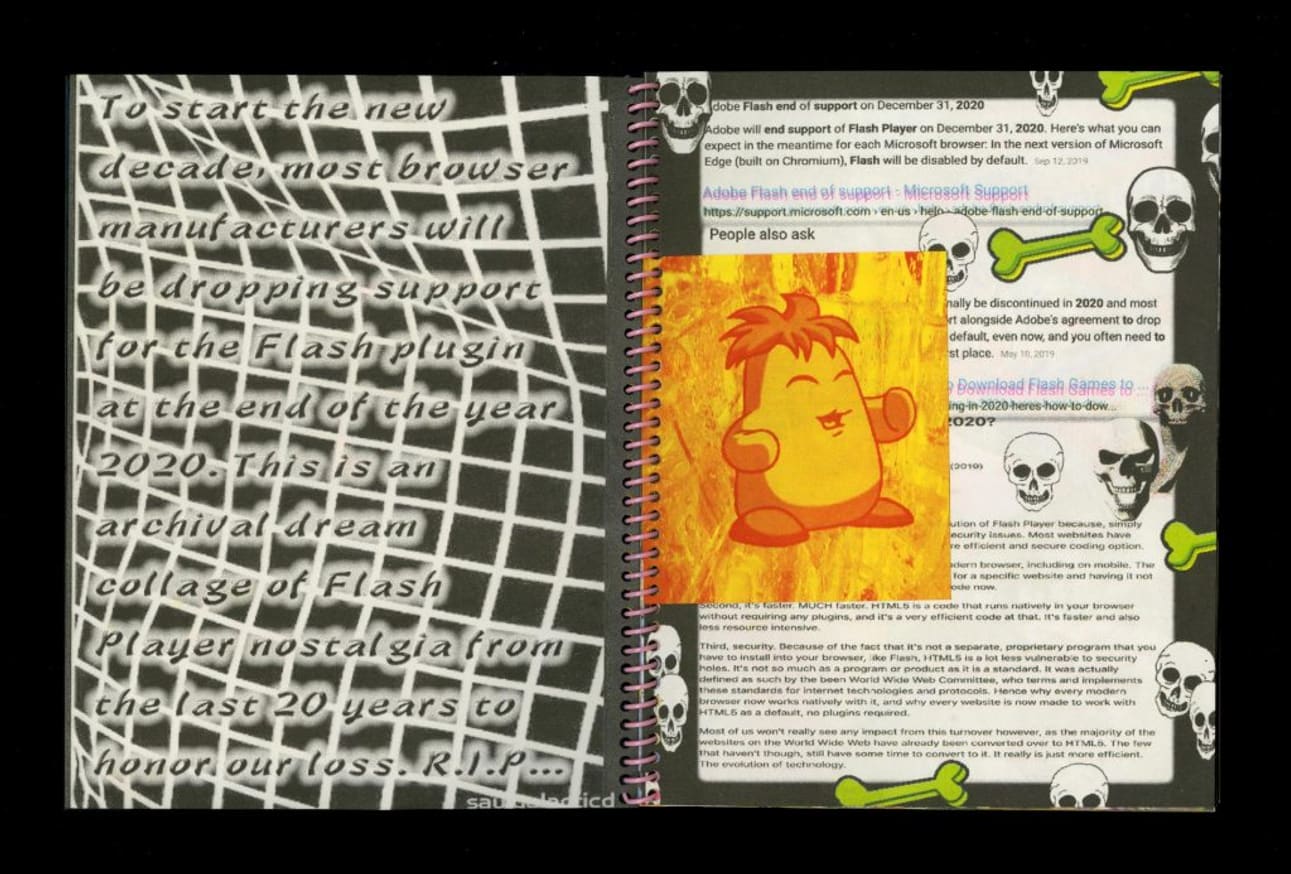 To start the new
decade, most browser
manufacturers will
be dropping support
for the Flash plugin
at the end of the year
2020. This is an
archival dream
collage of Flash
Player nostalgia from
the last 20 years to
honor our loss. R.I.P...
dobe Flash end of support on December 31, 2020
Adobe will end support of Flash Player on December 31, 2020. Here's what you can
expect in the meantime for each Microsoft browser: In the next version of Microsoft
Edge (built on Chromium), Flash will be disabled by default. Sep 12, 2019
Adobe Flash end of support - Microsoft Support
https://support.microsoft.com › en-us › help › adobe-flash-end-of-support
People also ask
nally be discontinued in 2020 and most
rt alongside Adobe's agreement to drop
default, even now, and you often need to
st place. May 10, 2019
o Download Flash Games to ...
ing-in-2020-heres-how-to-dow...
2020?
(2019)
ution of Flash Player because, simply
ecurity issues. Most websites have
re efficient and secure coding option.
dern browser, including on mobile. The
for a specific website and having it not
ode now.
Second, it's faster. MUCH faster. HTML5 is a code that runs natively in your browser
without requiring any plugins, and it's a very efficient code at that. It's faster and also
less resource intensive.
Third, security. Because of the fact that it's not a separate, proprietary program that you
have to install into your browser, like Flash, HTML5 is a lot less vulnerable to security
holes. It's not so much as a program or product as it is a standard. It was actually
defined as such by the been World Wide Web Committee, who terms and implements
these standards for internet technologies and protocols. Hence why every modern
browser now works natively with it, and why every website is now made to work with
HTML5 as a default, no plugins required.
Most of us won't really see any impact from this turnover however, as the majority of the
websites on the World Wide Web have already been converted over to HTML5. The few
that haven't though, still have some time to convert to it. It really is just more efficient.
The evolution of technology.